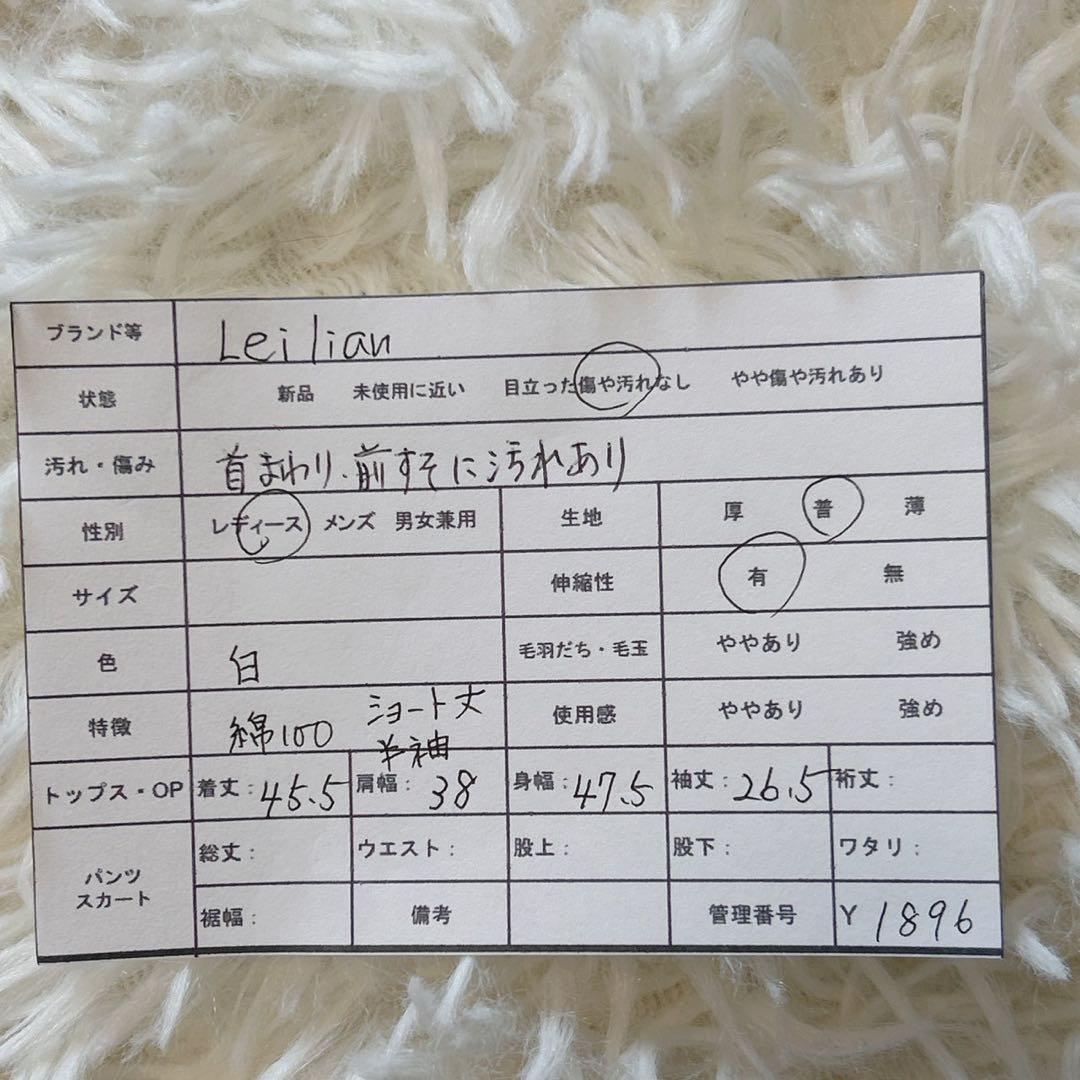 ブランド等 Leilian
状態 新品 未使用に近い 目立った傷や汚れなし やや傷や汚れあり
汚れ・傷み 首まわり、前すそに汚れあり
性別 レディース メンズ 男女兼用 生地 厚 普 薄
サイズ 伸縮性 有 無
色 白 毛羽だち・毛玉 ややあり 強め
特徴 綿100 ショート丈 半袖 使用感 ややあり 強め
トップス・OP 着丈:45.5 肩幅:38 身幅:47.5 袖丈:26.5 裄丈:
パンツ スカート 総丈: ウエスト: 股上: 股下: ワタリ:
裾幅: 備考 管理番号 Y 1896